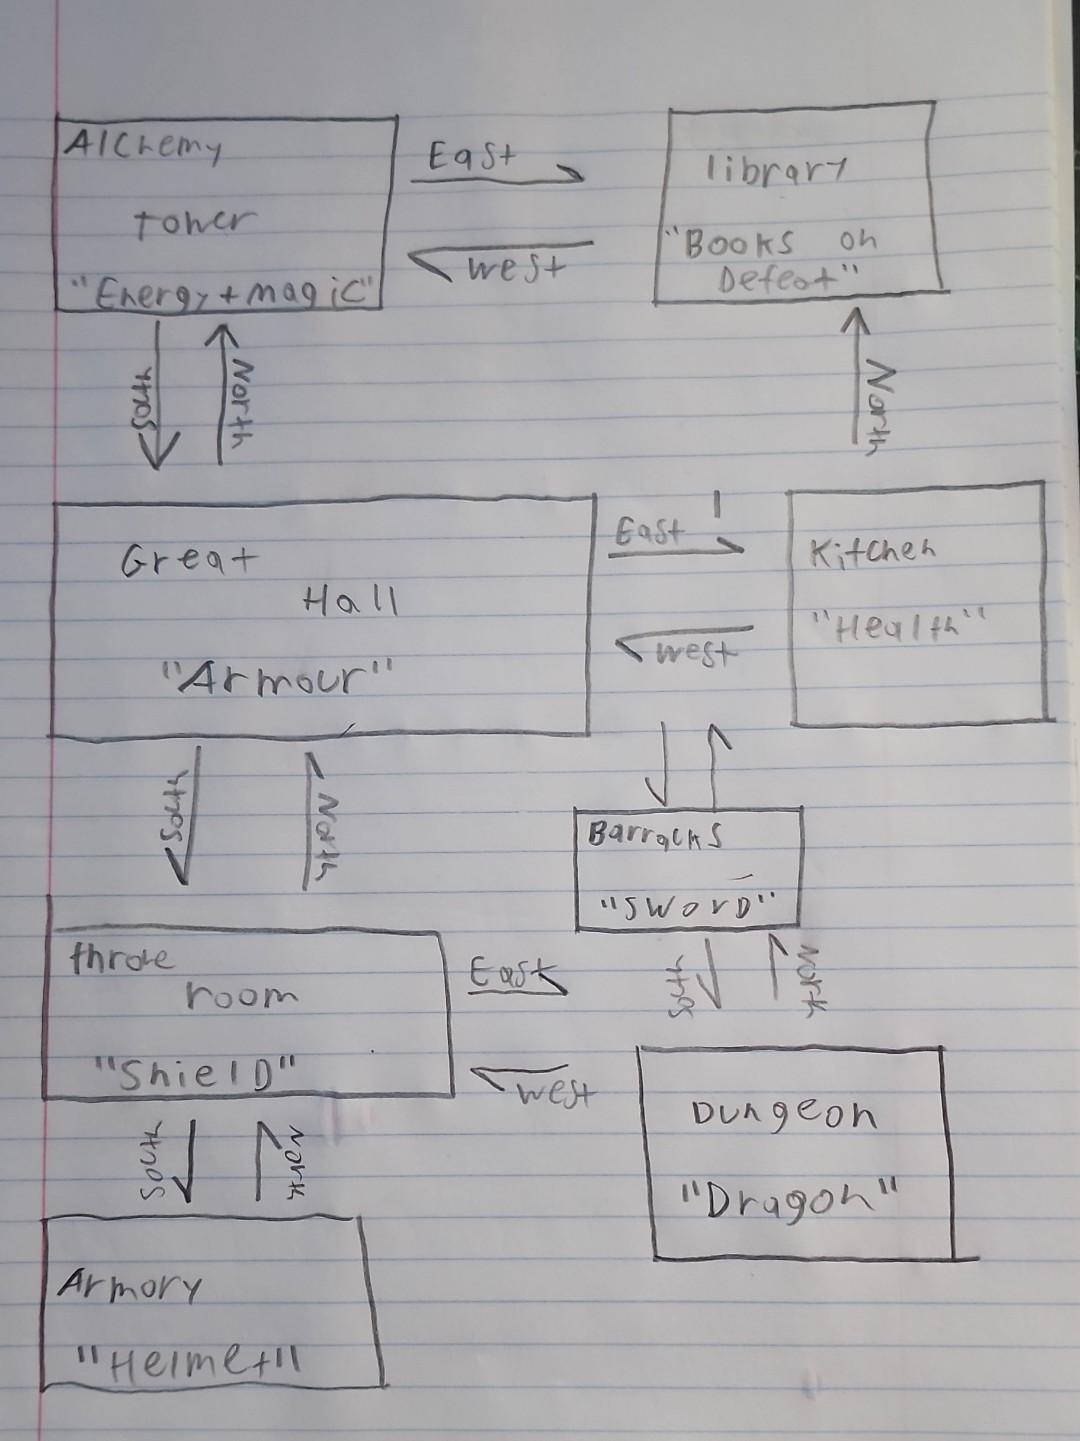 Alchemy
tower
"Energy+magic"
East
west
library
"Books on
Defeat"
South
North
North
Great
Hall
"Armour"
East
west
Kitchen
"Health"
South
North
Barracks
"SWorD"
throne
room
"ShielD"
East
west
South
North
Dungeon
"Dragon"
South
North
Armory
"Helmet"